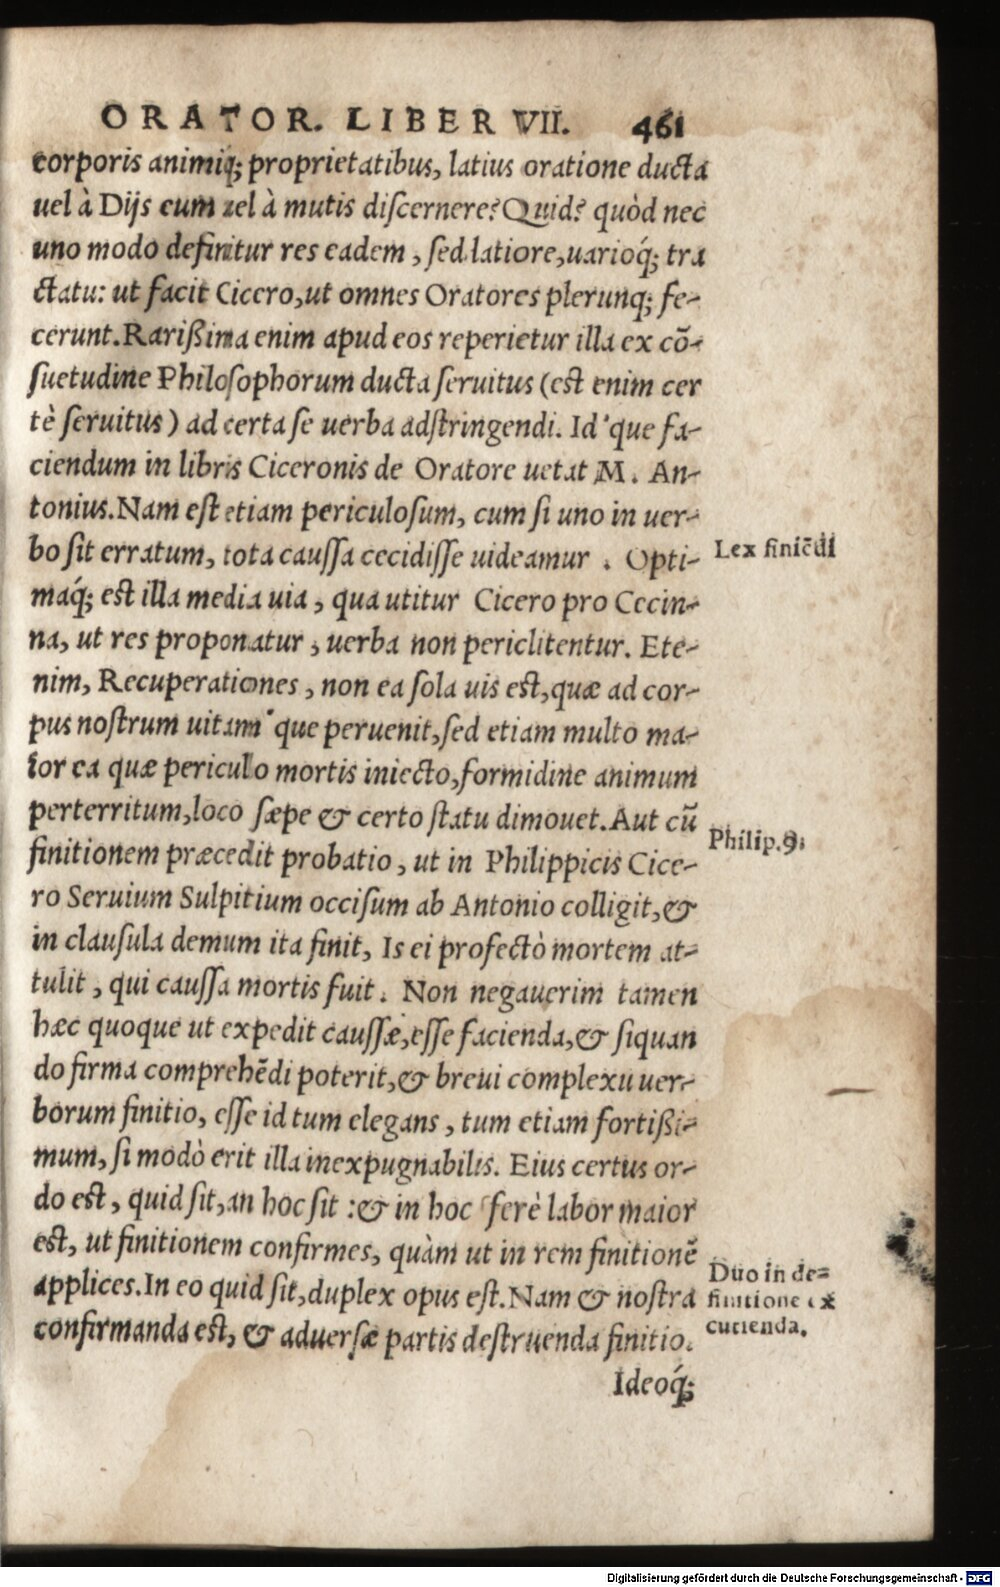 ORATOR. LIBER VII. 461
corporis animiq́; proprietatibus, latius oratione ducta
uel à Dijs eum uel à mutis diſcernere? Quid? quòd nec
uno modo definitur res eadem, ſed latiore, uarioq́; tra
ctatu: ut facit Cicero, ut omnes Oratores plerunq; fe-
cerunt. Rarißima enim apud eos reperietur illa ex cō-
ſuetudine Philoſophorum ducta ſeruitus (est enim cer
tè ſeruitus) ad certa ſe uerba adſtringendi. Id'que fa-
ciendum in libris Ciceronis de Oratore uetat M. An-
tonius. Nam est etiam periculoſum, cum ſi uno in uer-
bo ſit erratum, tota cauſſa cecidiſſe uideamur. Opti-
Lex finiẽdi
maq́; est illa media uia, qua utitur Cicero pro Cecin-
na, ut res proponatur, uerba non periclitentur. Ete-
nim, Recuperationes, non ea ſola uis est, quæ ad cor-
pus noſtrum uitam'que peruenit, ſed etiam multo ma-
ior ea quæ periculo mortis iniecto, formidine animum
perterritum, loco ſæpe & certo ſtatu dimouet. Aut cũ
Philip. 9.
finitionem præcedit probatio, ut in Philippicis Cice-
ro Seruium Sulpitium occiſum ab Antonio colligit, &
in clauſula demum ita finit, Is ei profectò mortem at-
tulit, qui cauſſa mortis fuit. Non negauerim tamen
hæc quoque ut expedit cauſſæ, eſſe facienda, & ſiquan
do firma comprehẽdi poterit, & breui complexu uer-
borum finitio, eſſe id tum elegans, tum etiam fortißi-
mum, ſi modò erit illa inexpugnabilis. Eius certus or-
do est, quid ſit, an hoc ſit: & in hoc ferè labor maior
est, ut finitionem confirmes, quàm ut in rem finitionẽ
Duo in de-
applices. In eo quid ſit, duplex opus est. Nam & noſtra
finitione ex
confirmanda est, & aduerſæ partis deſtruenda finitio.
cutienda.
Ideoq́;
Digitalisierung gefördert durch die Deutsche Forschungsgemeinschaft - DFG